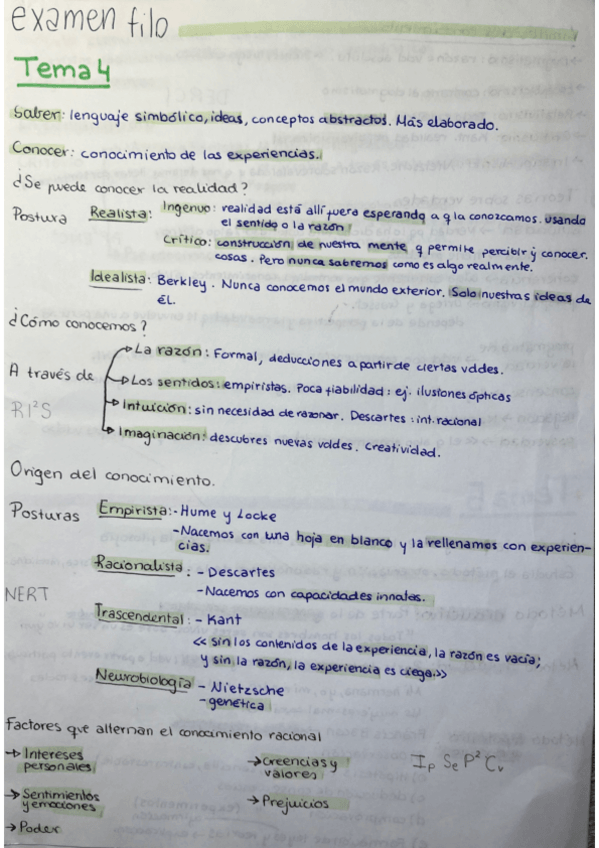 examen filo
Tema 4
Saber: lenguaje simbólico, ideas, conceptos abstractos. Más elaborado.
Conocer: conocimiento de las experiencias.
¿Se puede conocer la realidad?
Postura Realista: Ingenuo: realidad está allí fuera esperando a q la conozcamos. usando
el sentido o la razón
Crítico: construcción de nuestra mente q permite percibir y conocer.
cosas. Pero nunca sabremos como es algo realmente.
Idealista: Berkley. Nunca conocemos el mundo exterior. Solo nuestras ideas de
ÉL.
¿Cómo conocemos?
→ La razón: Formal, deducciones a partir de ciertas vddes.
A través de → Los sentidos: empiristas. Poca fiabilidad: ej. ilusiones ópticas
RI²S → Intuición: sin necesidad de razonar. Descartes: int. racional
→ Imaginación: descubres nuevas vddes. Creatividad.
Origen del conocimiento.
Posturas Empirista: - Hume y Locke
- Nacemos con una hoja en blanco y la rellenamos con experien-
cias.
Racionalista: - Descartes
NERT - Nacemos con capacidades innatas.
Trascendental: - Kant
<< sin los contenidos de la experiencia, la razón es vacía;
y sin la razón, la experiencia es ciega.>>
Neurobiología - Nietzsche
- genética
Factores que alternan el conocimiento racional
→ Intereses
personales
→ Creencias y
valores
Ip Se P² Cv
→ Sentimientos
y emociones
→ Prejuicios
→ Poder